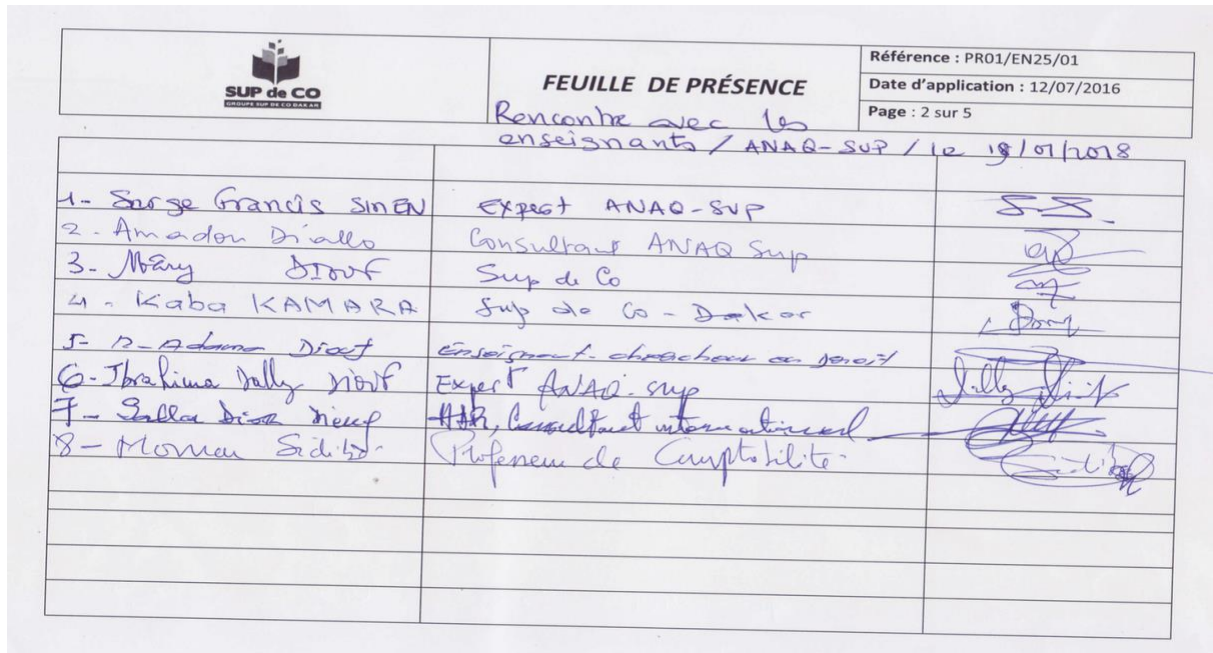 SUP de CO
GROUPE SUP DE CO DAKAR
FEUILLE DE PRÉSENCE
Référence : PR01/EN25/01
Date d'application : 12/07/2016
Page : 2 sur 5
Rencontre avec les
enseignants / ANAQ-SUP / le 19/01/2018
1- Serge Francis SIMEN Expert ANAQ-SUP S.S.
2- Amadou Diallo Consultant ANAQ Sup
3- DIOUF Sup de Co
4- Kaba KAMARA Sup de Co - Dakar
5- Adama Enseignant-chercheur en droit
6- Ibrahima Dally DIOUF Expert ANAQ-sup Dally Diouf
7- Consultant international
8- Sidibé Professeur de Comptabilité Sidibé